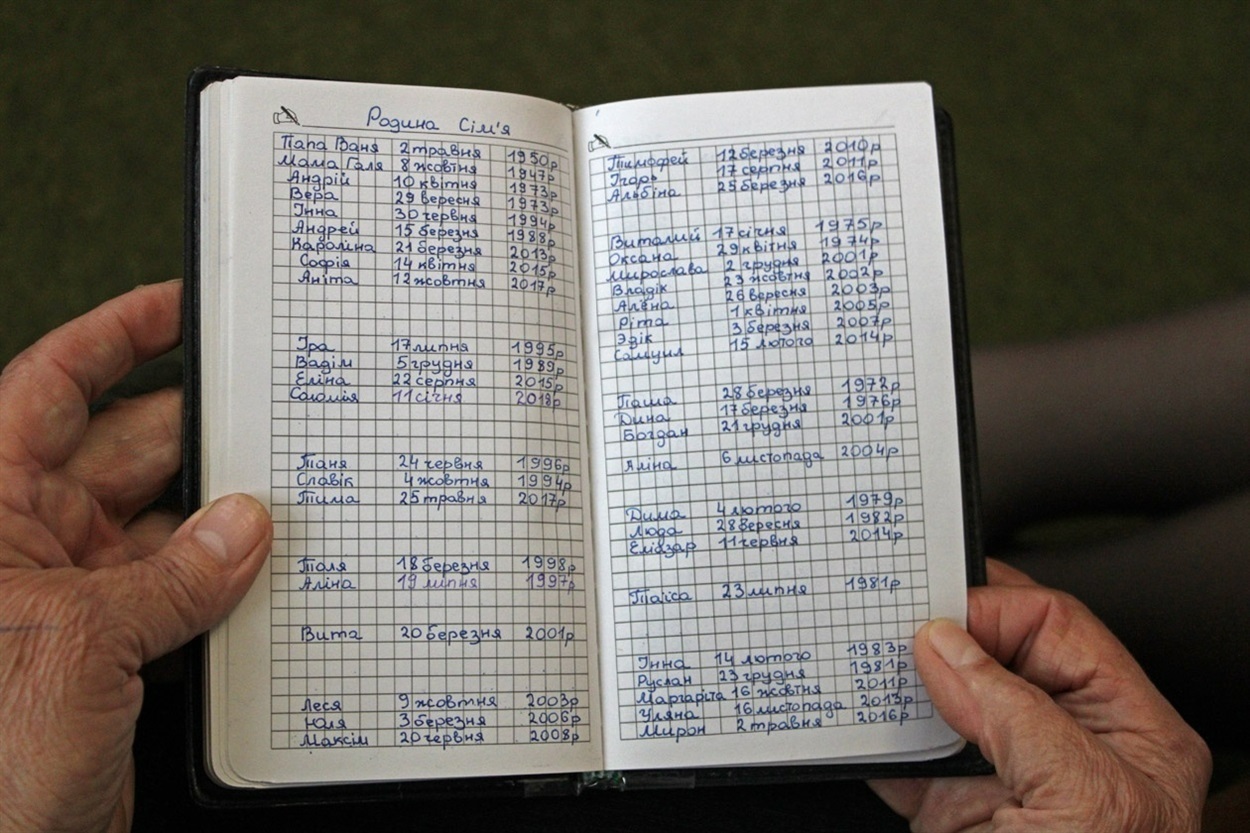 Родина Сім'я
Папа Ваня 2 травня 1950р
Мама Галя 8 жовтня 1947р
Андрій 10 квітня 1973р
Вера 29 вересня 1973р
Інна 30 червня 1994р
Андрей 15 березня 1988р
Кароліна 21 березня 2013р
Софія 14 квітня 2015р
Аніта 12 жовтня 2017р
Іра 17 липня 1995р
Вадім 5 грудня 1989р
Еліна 22 серпня 2015р
Соломія 11 січня 2018р
Таня 24 червня 1996р
Славік 4 жовтня 1994р
Тима 25 травня 2017р
Толя 18 березня 1998р
Аліна 19 липня 1997р
Вита 20 березня 2001р
Леся 9 жовтня 2003р
Юля 3 березня 2006р
Максім 20 червня 2008р
Тимофей 12 березня 2010р
Ігорь 17 серпня 2011р
Альбіна 25 березня 2016р
Виталий 17 січня 1975р
Оксана 29 квітня 1974р
Мирослава 2 грудня 2001р
Владік 23 жовтня 2002р
Алёна 26 вересня 2003р
Ріта 1 квітня 2005р
Эдік 3 березня 2007р
Самуил 15 лютого 2014р
Паша 28 березня 1972р
Дина 17 березня 1976р
Богдан 21 грудня 2001р
Аліна 6 листопада 2004р
Дима 4 лютого 1979р
Люда 28 вересня 1982р
Елізар 11 червня 2014р
Таїса 23 липня 1981р
Інна 14 лютого 1983р
Руслан 23 грудня 1981р
Маргаріта 16 жовтня 2011р
Уляна 16 листопада 2013р
Мирон 2 травня 2016р